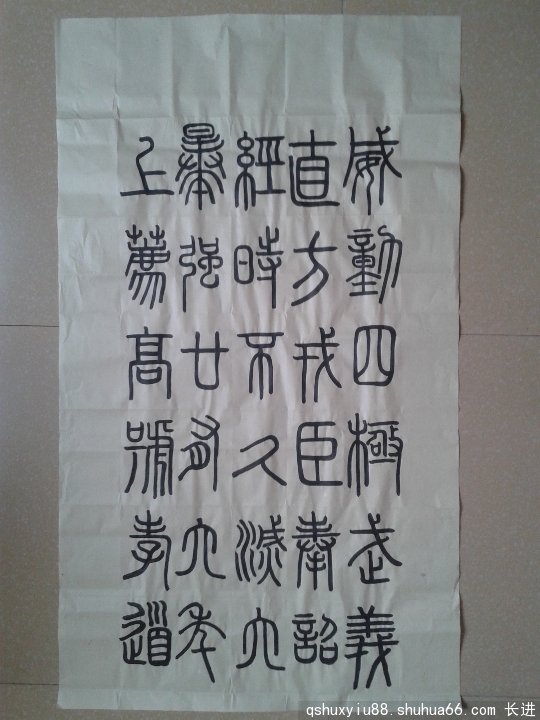 威動四極武義
直方戎臣奉詔
經時不久滅六
暴強廿有六年
上薦高號孝道
qshuxyiu88.shuhua66.com 长进